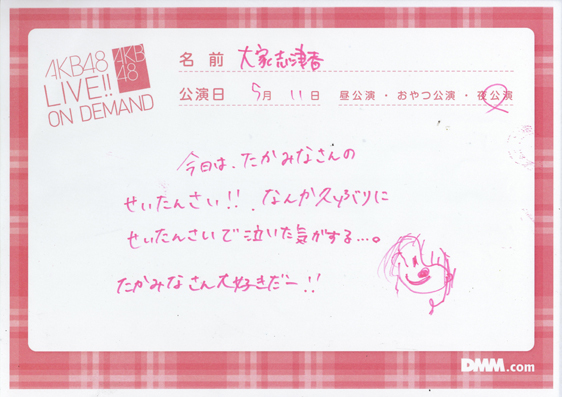 AKB48
LIVE!!
ON DEMAND
AKB
48
名前 大家志津香
公演日 5月 11日 昼公演・おやつ公演・夜公演
今日は、たかみなさんの
せいたんさい!! なんか久々ぶりに
せいたんさいで泣いた気がする…。
たかみなさん大好きだー!!
DMM.com